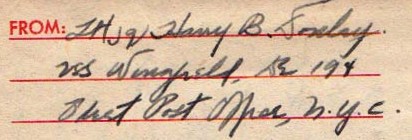 FROM: Lt jg Harry B.
USS Wingfield, DE 194
Fleet Post Office, N.Y.C.